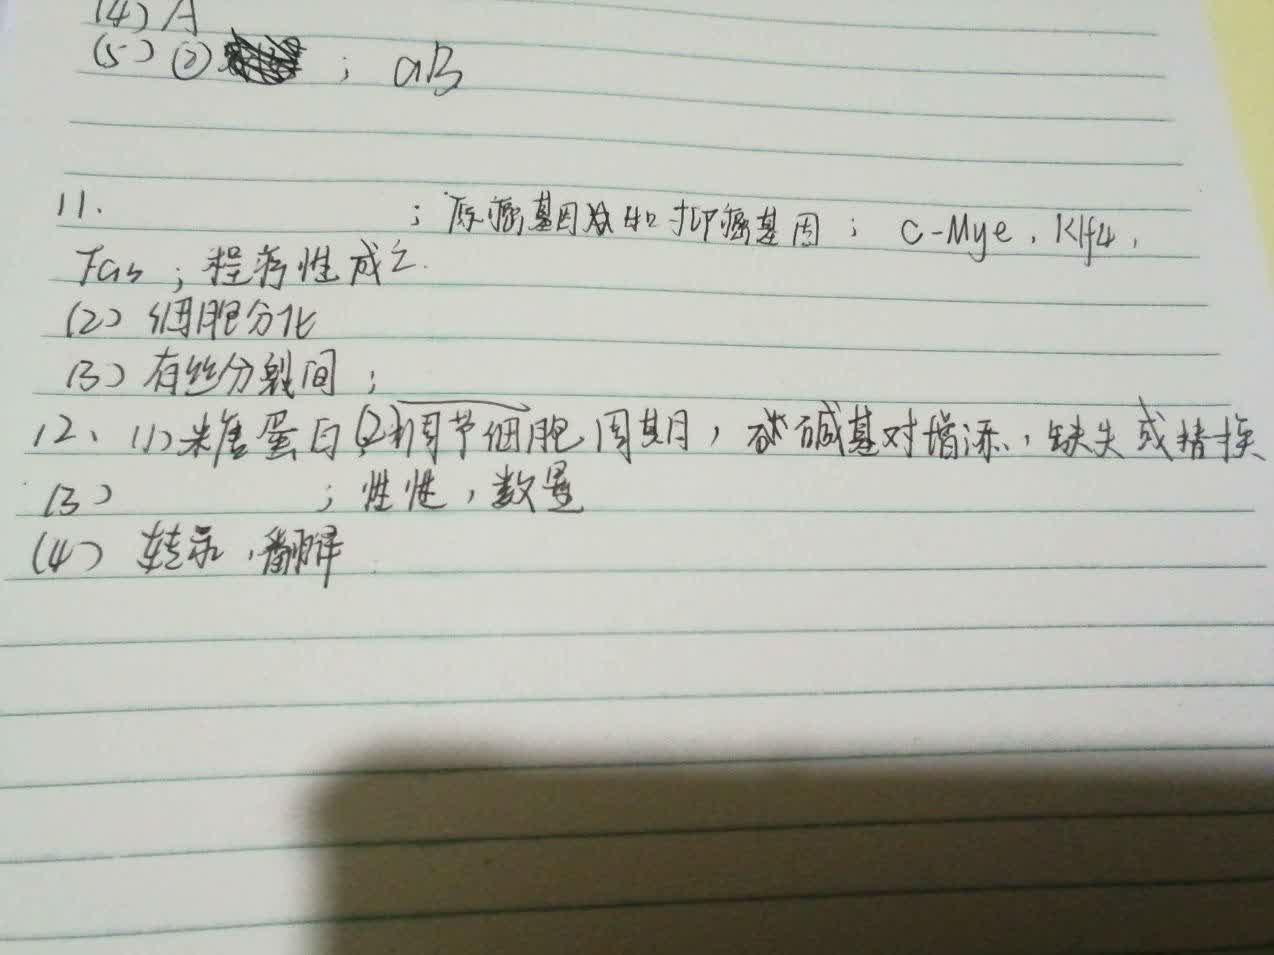 (4) A
(5) ② ; aB
11. ; 原癌基因和抑癌基因 ; c-Mye, Klf4,
Fas ; 程序性成立.
(2) 细胞分化
(3) 有丝分裂间 ;
12、(1) 糖蛋白 (2) 调节细胞周期, 碱基对增添、缺失或替换
(3) ; 性性, 数量
(4) 转录, 翻译